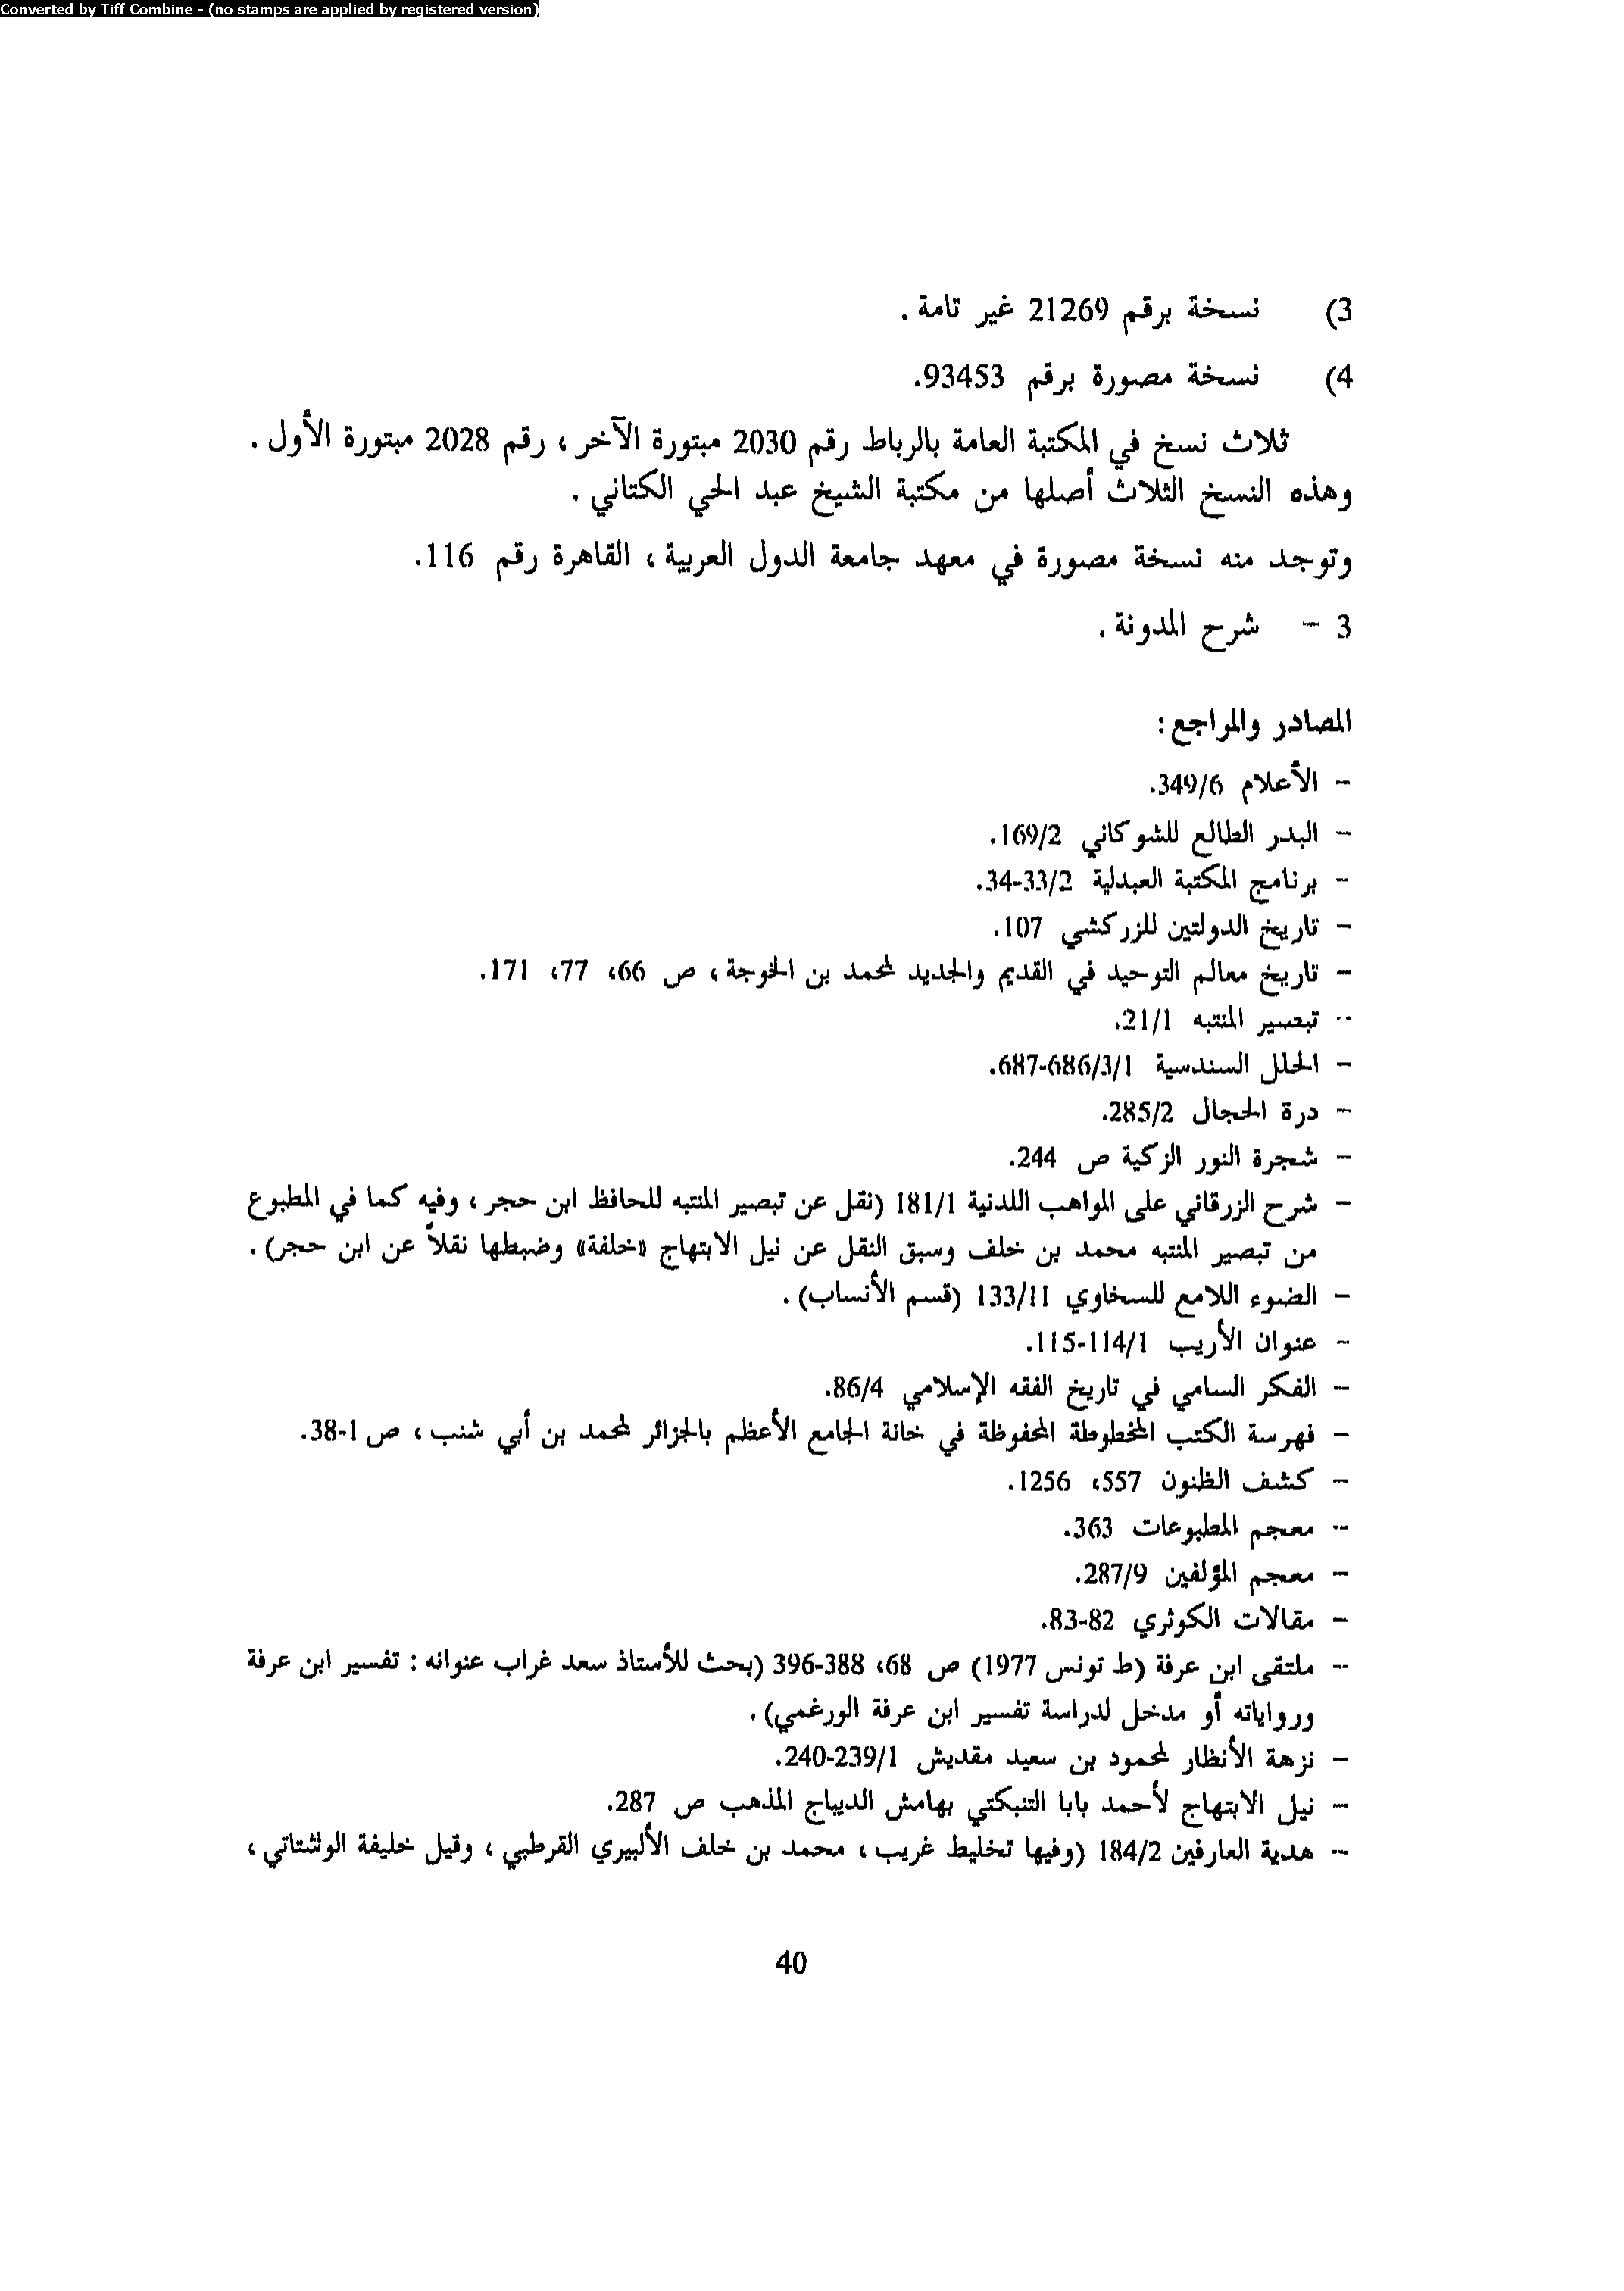 Converted by Tiff Combine - (no stamps are applied by registered version)
3) نسخة برقم 21269 غير تامة .
4) نسخة مصورة برقم 93453.
ثلاث نسخ في المكتبة العامة بالرباط رقم 2030 مبتورة الآخر ، رقم 2028 مبتورة الأول .
وهذه النسخ الثلاث أصلها من مكتبة الشيخ عبد الحي الكتاني .
وتوجد منه نسخة مصورة في معهد جامعة الدول العربية ، القاهرة رقم 116.
3 – شرح المدونة .
المصادر والمراجع :
– الأعلام 349/6.
– البدر الطالع للشوكاني 169/2.
– برنامج المكتبة العبدلية 33/2-34.
– تاريخ الدولتين للزركشي 107.
– تاريخ معالم التوحيد في القديم والجديد لمحمد بن الخوجة ، ص 66، 77، 171.
– تبصير المنتبه 21/1.
– الحلل السندسية 686/3/1-687.
– درة الحجال 285/2.
– شجرة النور الزكية ص 244.
– شرح الزرقاني على المواهب اللدنية 181/1 (نقل عن تبصير المنتبه للحافظ ابن حجر ، وفيه كما في المطبوع
من تبصير المنتبه محمد بن خلف وسبق النقل عن نيل الابتهاج «خلفة» وضبطها نقلاً عن ابن حجر) .
– الضوء اللامع للسخاوي 133/11 (قسم الأنساب) .
– عنوان الأريب 114/1-115.
– الفكر السامي في تاريخ الفقه الإسلامي 86/4.
– فهرسة الكتب المخطوطة المحفوظة في خانة الجامع الأعظم بالجزائر لمحمد بن أبي شنب ، ص 1-38.
– كشف الظنون 557، 1256.
– معجم المطبوعات 363.
– معجم المؤلفين 287/9.
– مقالات الكوثري 82-83.
– ملتقى ابن عرفة (ط تونس 1977) ص 68، 388-396 (بحث للأستاذ سعد غراب عنوانه : تفسير ابن عرفة
ورواياته أو مدخل لدراسة تفسير ابن عرفة الورغمي) .
– نزهة الأنظار لمحمود بن سعيد مقديش 239/1-240.
– نيل الابتهاج لأحمد بابا التنبكتي بهامش الديباج المذهب ص 287.
– هدية العارفين 184/2 (وفيها تخليط غريب ، محمد بن خلف الألبيري القرطبي ، وقيل خليفة الوشتاتي ،
40